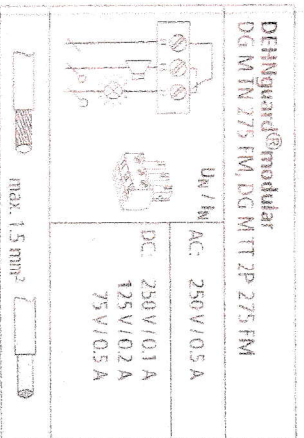 DEHNguard® modular
DG M TN 275 FM, DG M TT 2P 275 FM
UN / IN
AC: 250 V / 0.5 A
DC: 250 V / 0.1 A
125 V / 0.2 A
75 V / 0.5 A
max. 1.5 mm²